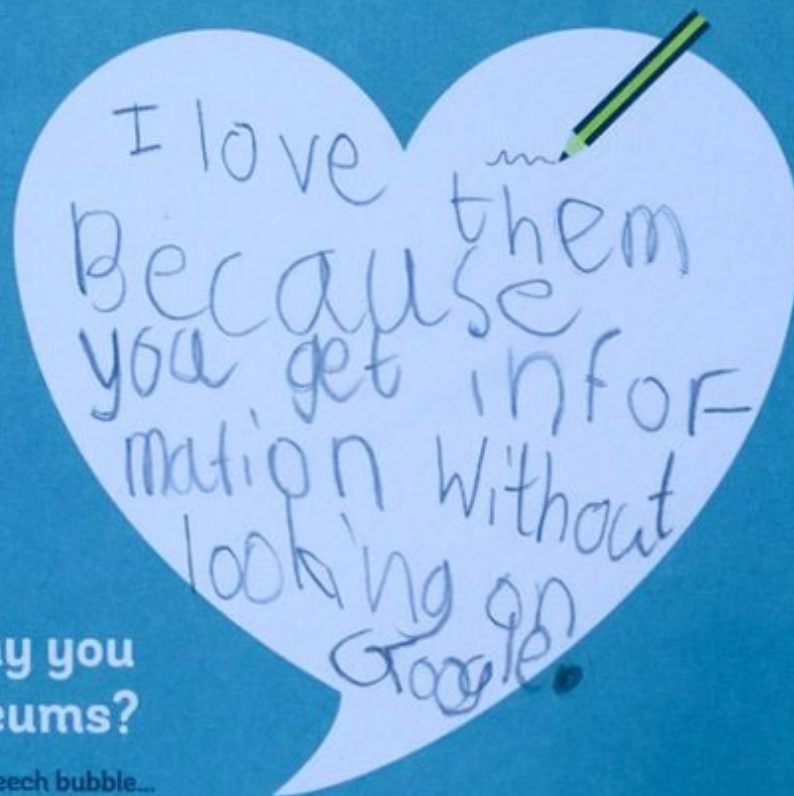 I love
them
Because
you get infor-
mation Without
looking on
Google.
ay you
eums?
eech bubble...